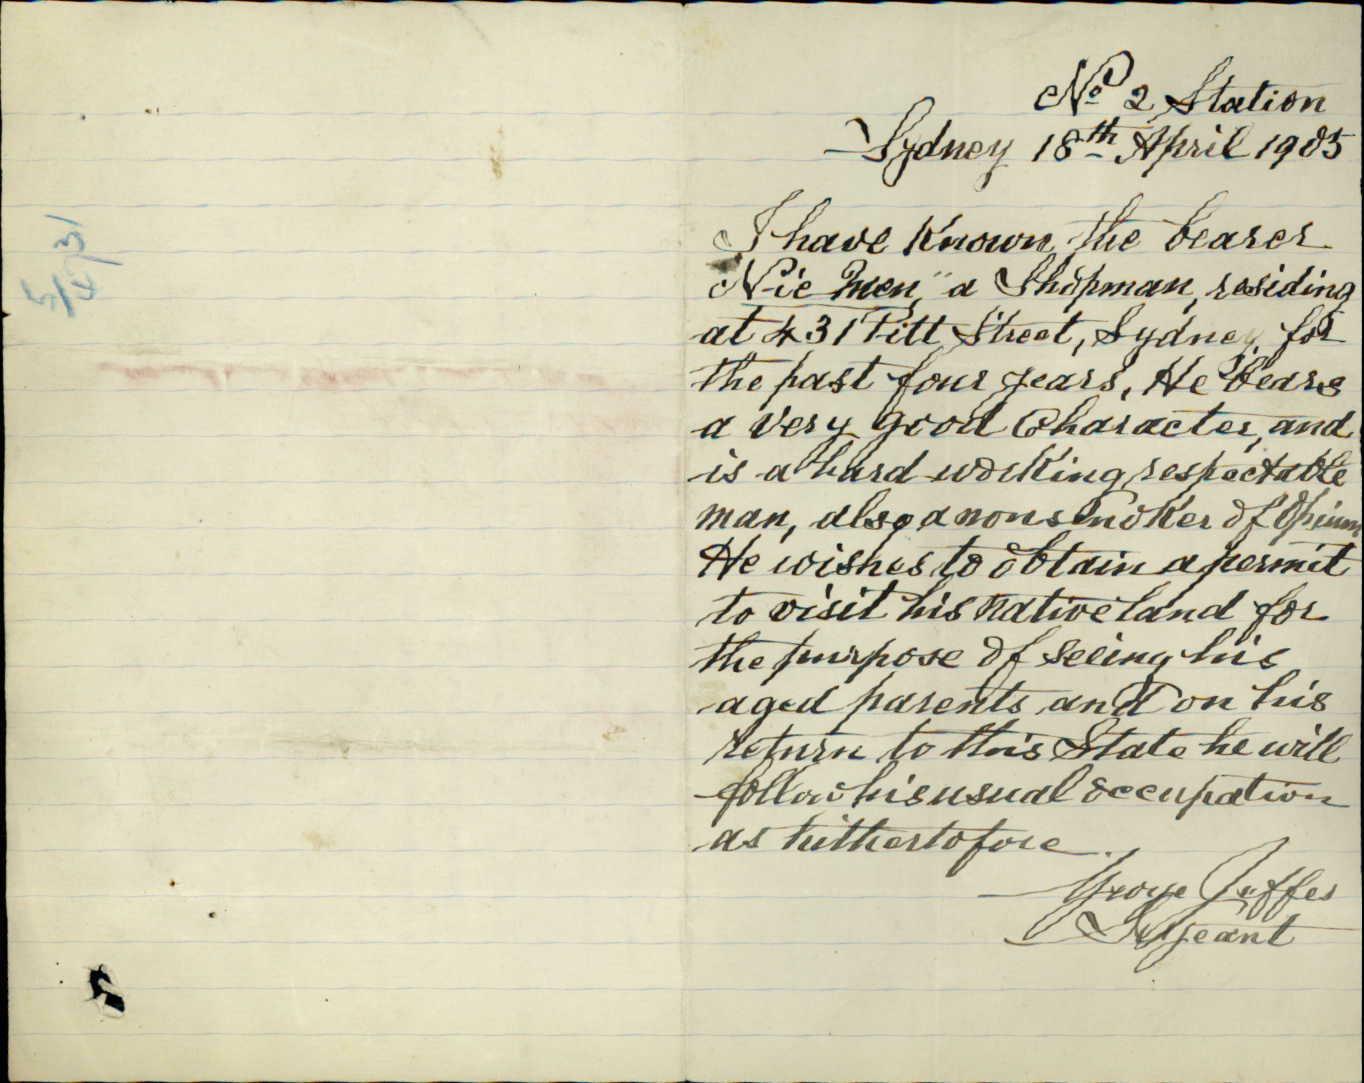 No 2 Station
Sydney 18th April 1905
I have known the bearer
Nie Men," a Shopman, residing
at 431 Pitt Street, Sydney, for
the past four years, He bears
a very good Character, and
is a hard working, respectable
man, also a non smoker of Opium
He wishes to obtain a permit
to visit his native land for
the purpose of seeing his
aged parents and on his
return to this State he will
follow his usual occupation
as hithertofore.
George Jeffes
Sergeant